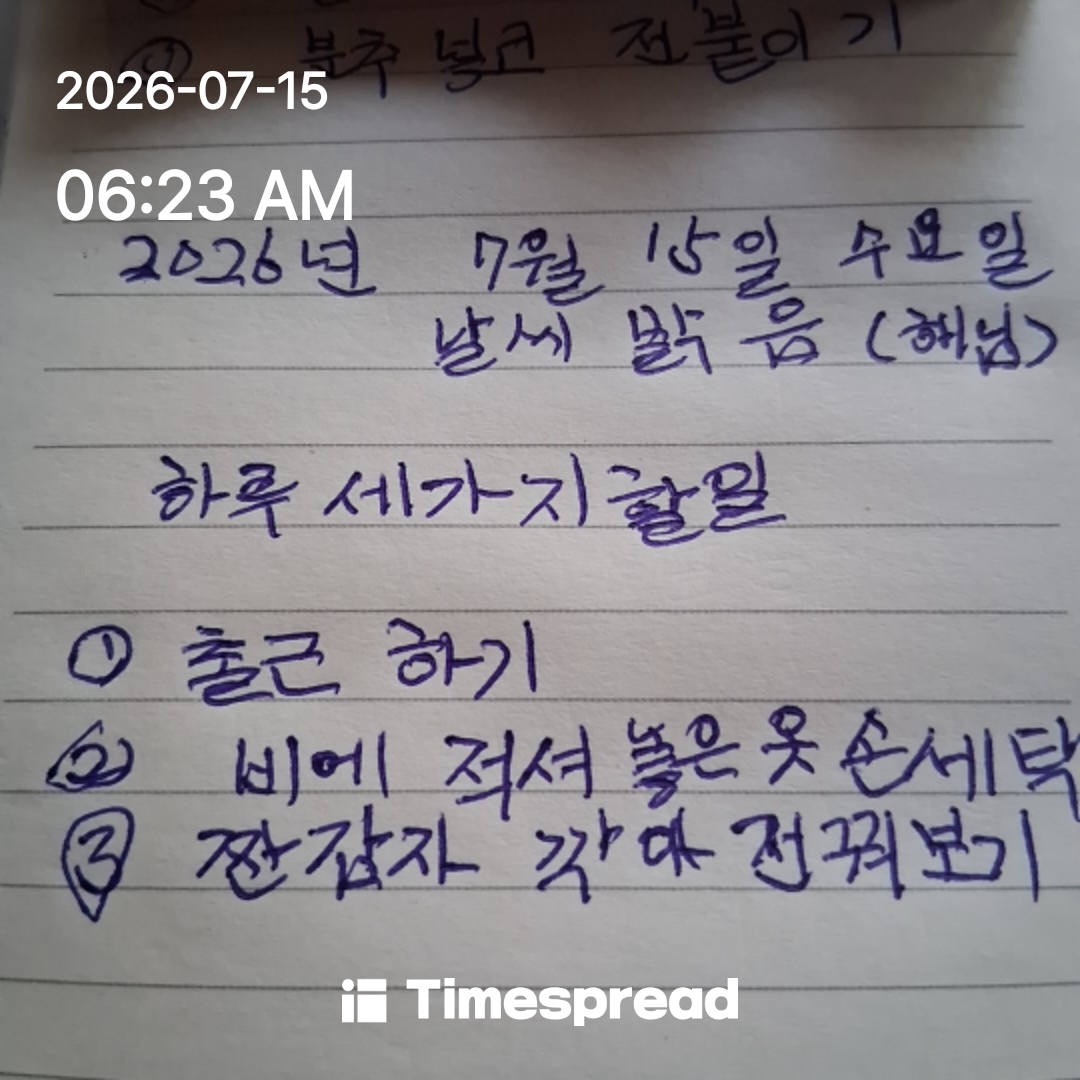 부추 넣고 전 붙이기
2026-07-15
06:23 AM
2026년 7월 15일 수요일
날씨 맑음 (해님)
하루 세가지 할일
① 출근 하기
② 비에 적셔 놓은 옷 손세탁
③ 짠 감자 전 보기
Timespread